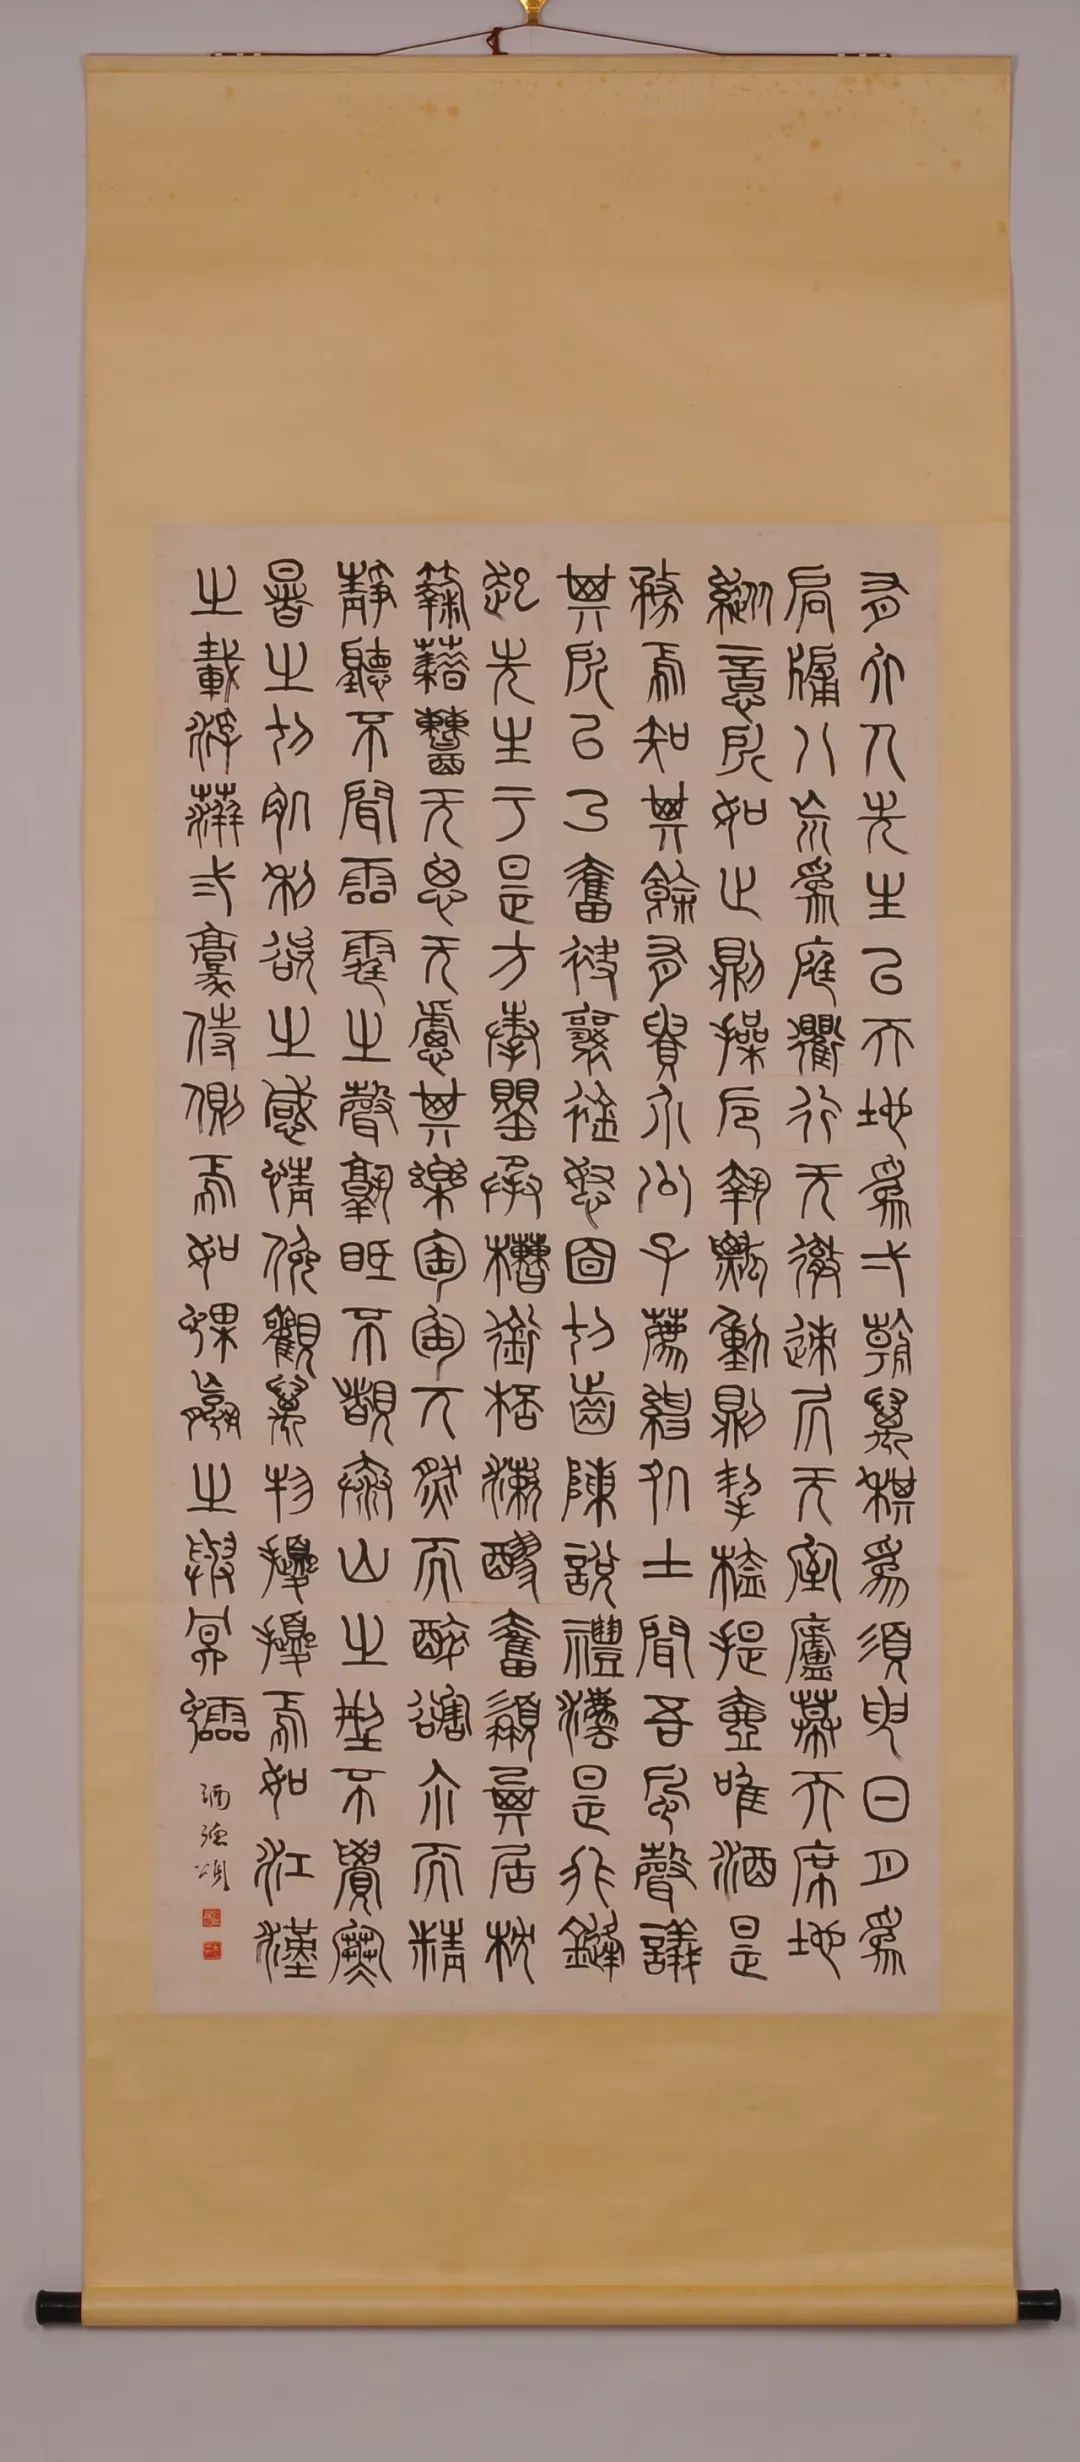 有大人先生以天地爲弌朝萬稘爲須臾日月爲
扃牖八荒爲庭衢行无轍迹居无室廬幕天席地
縱意所如止則操卮執瓢動則挈榼提壺唯酒是
務焉知其餘有貴介公子薦紳処士聞吾風聲議
其所以乃奮袂攘衿怒目切齒陳說禮灋是非鏠
起先生于是方捧罌承槽銜桮漱醪奮髯箕居枕
麴藉糟无思无慮其樂陶陶兀然而醉豁尒而精
靜聽不聞雷霆之聲孰眂不睹泰山之型不覺寒
暑之切肌利欲之感情俛觀萬物擾擾焉如江漢
之載浮萍弍豪侍側焉如蜾蠃之與螟蠕
酒德頌